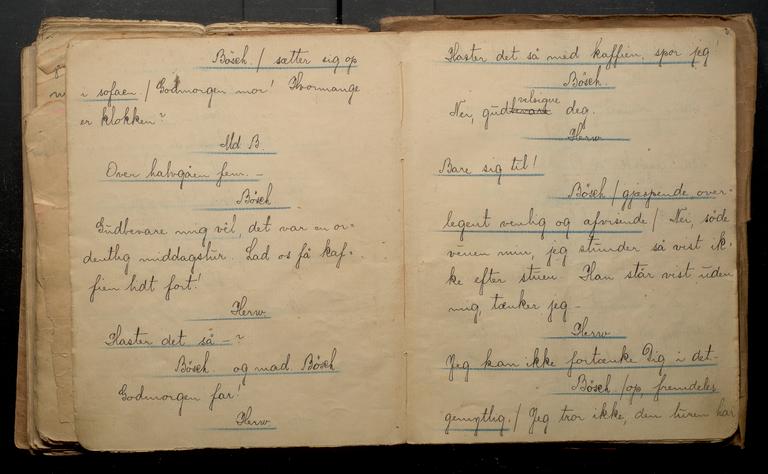 Bösch / sætter sig op
i sofaen / Godmorgen mor! Hvormange
er klokken?
Md B.
Over halvgåen fem. –
Bösch
Gudbevare mig vel, det var en or-
dentlig middagslur. Lad os få kaf-
fien lidt fort!
Herw
Haster det så – ?
Bösch og mad. Bösch
Godmorgen far!
Herw
Haster det så med kaffien, spor jeg!
Bösch
velsigne
Nei, gudbevare deg.
Herw
Bare sig til!
Bösch / gjæspende, over-
legent venlig og afvisende / Nei, søde
vennen min, jeg stunder så vist ik-
ke efter stuen. Han står vist uden
mig, tænker jeg –
Herw
Jeg kan ikke fortænke Dig i det–
Bösch /op, fremdeles
gemytlig. / Jeg tror ikke, den turen har